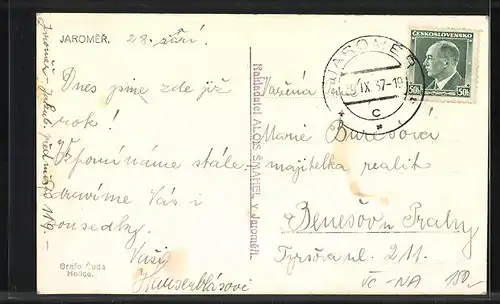 JAROMĚŘ. 28. září.
Dnes jsme zde již
rok!
Vzpomínáme stále
zdravíme Vás i
sousedky.
Vaši
Hauserblásovi
Grafo Čuda
Holice.
Jaroměř - Jakub. předměstí 119
Nakladatel ALOIS ŠMAHEL v Jaroměři.
ČESKOSLOVENSKO
50h 50h
JAROMĚŘ
IX 37-19
C
Vážená
Marie Burešová
majitelka realit
Benešov u Prahy
Tyršova ul. 211.
VC-NA 150,-